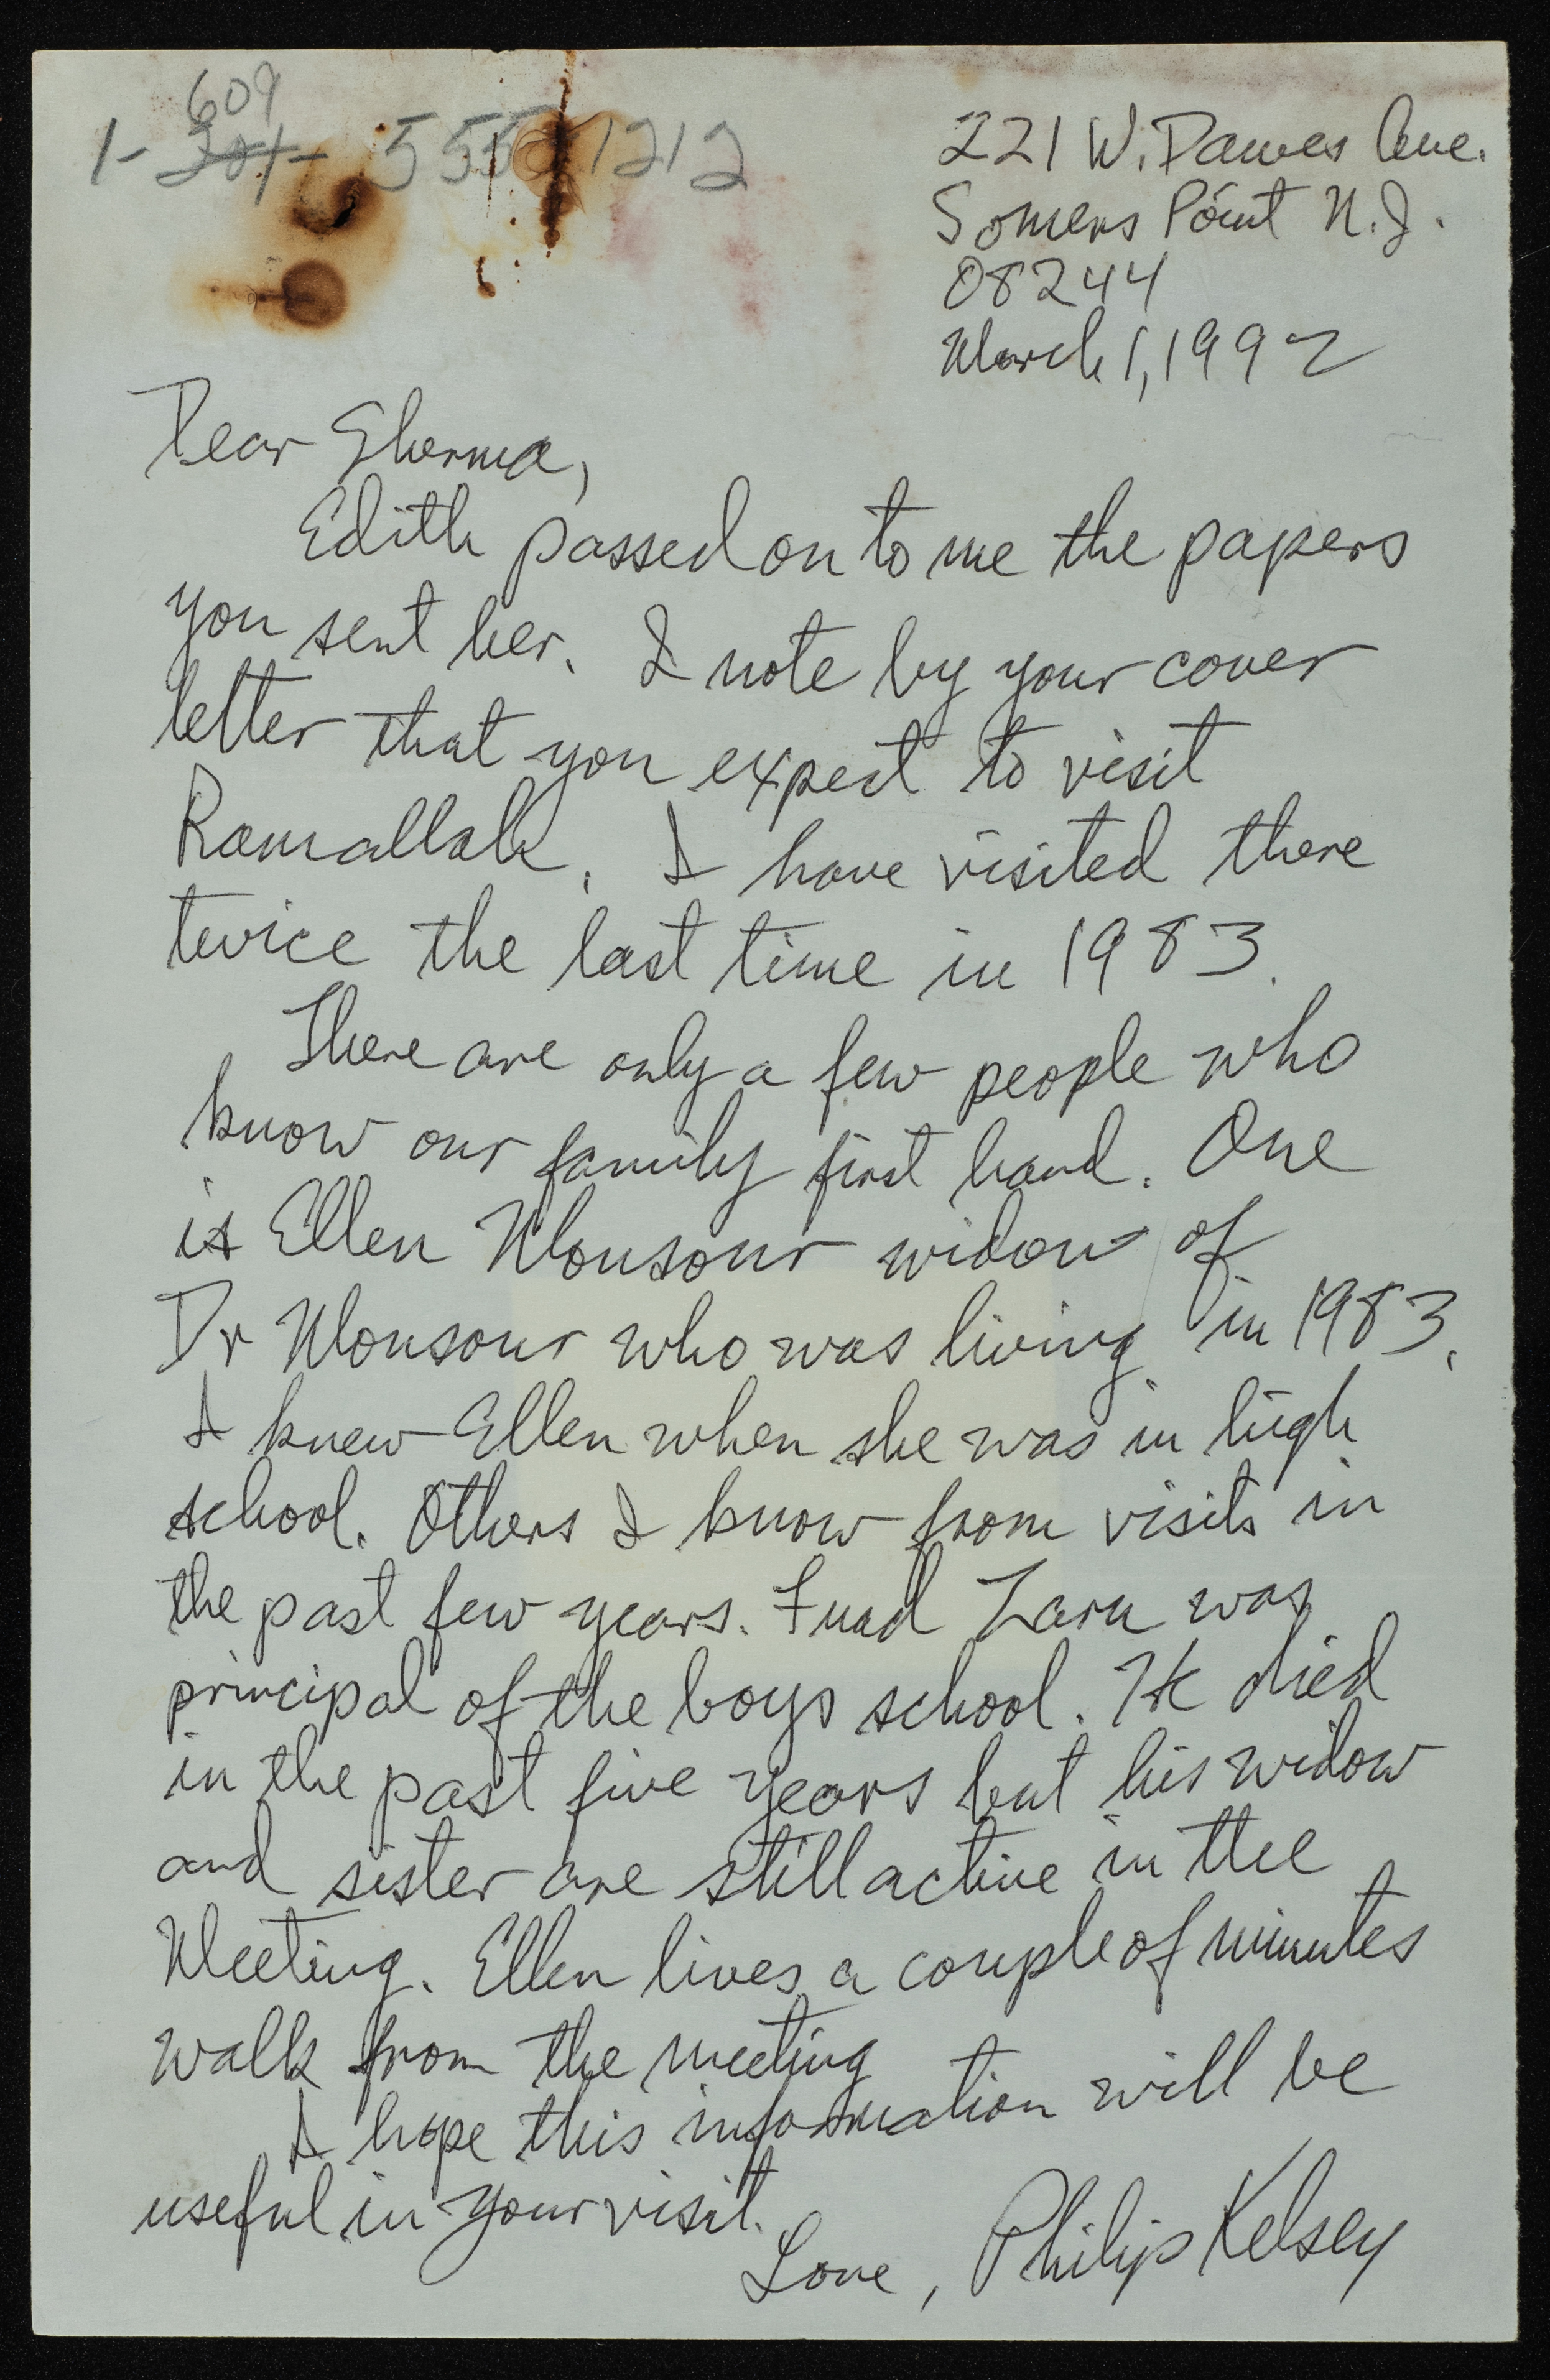 609
1-201-555-1212
221 W. Dawes Ave.
Somers Point N.J.
08244
March 1, 1992
Dear Sherma,
Edith passed on to me the papers
you sent her. I note by your cover
letter that you expect to visit
Ramallah. I have visited there
twice the last time in 1983.
There are only a few people who
know our family first hand. One
is Ellen Monsour widow of
Dr Monsour who was living in 1983.
I knew Ellen when she was in high
school. Others I know from visits in
the past few years. Fuad Zaru was
principal of the boys school. He died
in the past five years but his widow
and sister are still active in the
Meeting. Ellen lives a couple of minutes
walk from the meeting
I hope this information will be
useful in your visit.
Love, Philip Kelsey